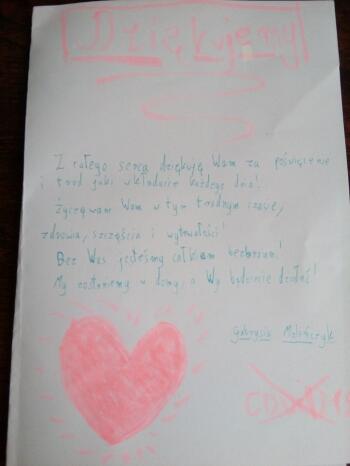 Dziękujemy
Z całego serca dziękuję Wam za poświęcenie
i trud jaki wkładacie każdego dnia!
Życzę wam Wam w tym trudnym czasie,
zdrowia, szczęścia i wytrwałości!
Bez Was jesteśmy całkiem bezbronni!
My zostaniemy w domu, a Wy będziecie działać!
Gabrysia